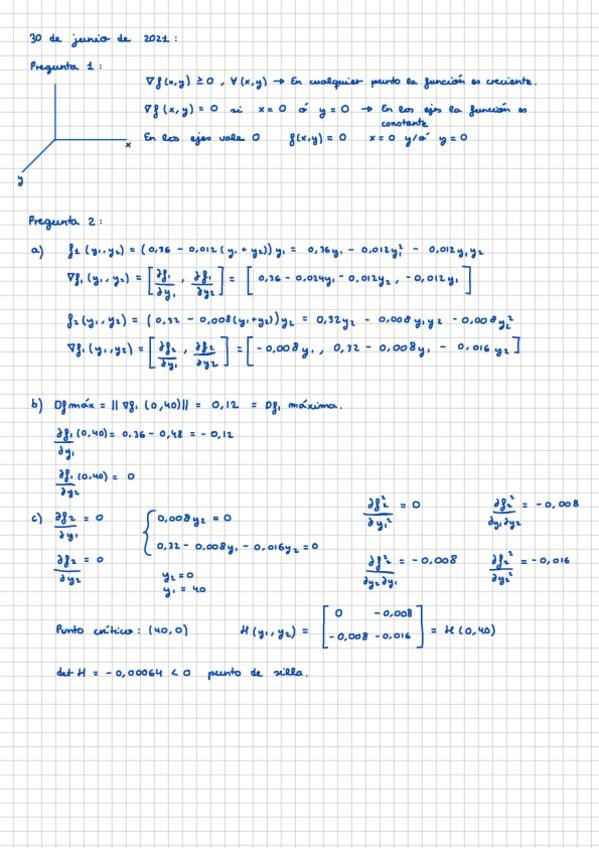 30 de junio de 2021:
Pregunta 1:
∇f(x,y) ≥ 0 , ∀(x,y) → En cualquier punto la función es creciente.
∇f(x,y) = 0 si x=0 ó y=0 → En los ejes la función es
constante
En los ejes vale 0 f(x,y) = 0 x=0 y/ó y=0
x
y
Pregunta 2:
a) f1 (y₁,y₂) = (0,36 - 0,012(y₁ + y₂)) y₁ = 0,36y₁ - 0,012y₁² - 0,012y₁y₂
∇f₁ (y₁,y₂) = [∂f₁/∂y₁ , ∂f₁/∂y₂] = [0,36 - 0,024y₁ - 0,012y₂ , -0,012y₁]
f₂(y₁,y₂) = (0,32 - 0,008(y₁+y₂))y₂ = 0,32y₂ - 0,008y₁y₂ - 0,008y₂²
∇f₁ (y₁,y₂) = [∂f₂/∂y₁ , ∂f₂/∂y₂] = [-0,008y₁ , 0,32 - 0,008y₁ - 0,016y₂]
b) Dfmáx = || ∇f₁ (0,40)|| = 0,12 = Df₁ máxima.
∂f₁/∂y₁ (0,40) = 0,36 - 0,48 = -0,12
∂f₁/∂y₂ (0,40) = 0
c) ∂f₂/∂y₁ = 0 { 0,008y₂ = 0 ∂f₂²/∂y₁² = 0 ∂f₂²/∂y₁∂y₂ = -0,008
∂f₂/∂y₂ = 0 0,32 - 0,008y₁ - 0,016y₂ = 0 ∂f₂²/∂y₂∂y₁ = -0,008 ∂f₂²/∂y₂² = -0,016
y₂ = 0
y₁ = 40
Punto crítico: (40,0) H(y₁,y₂) = [0 -0,008
-0,008 -0,016] = H(0,40)
det H = -0,00064 < 0 punto de silla.